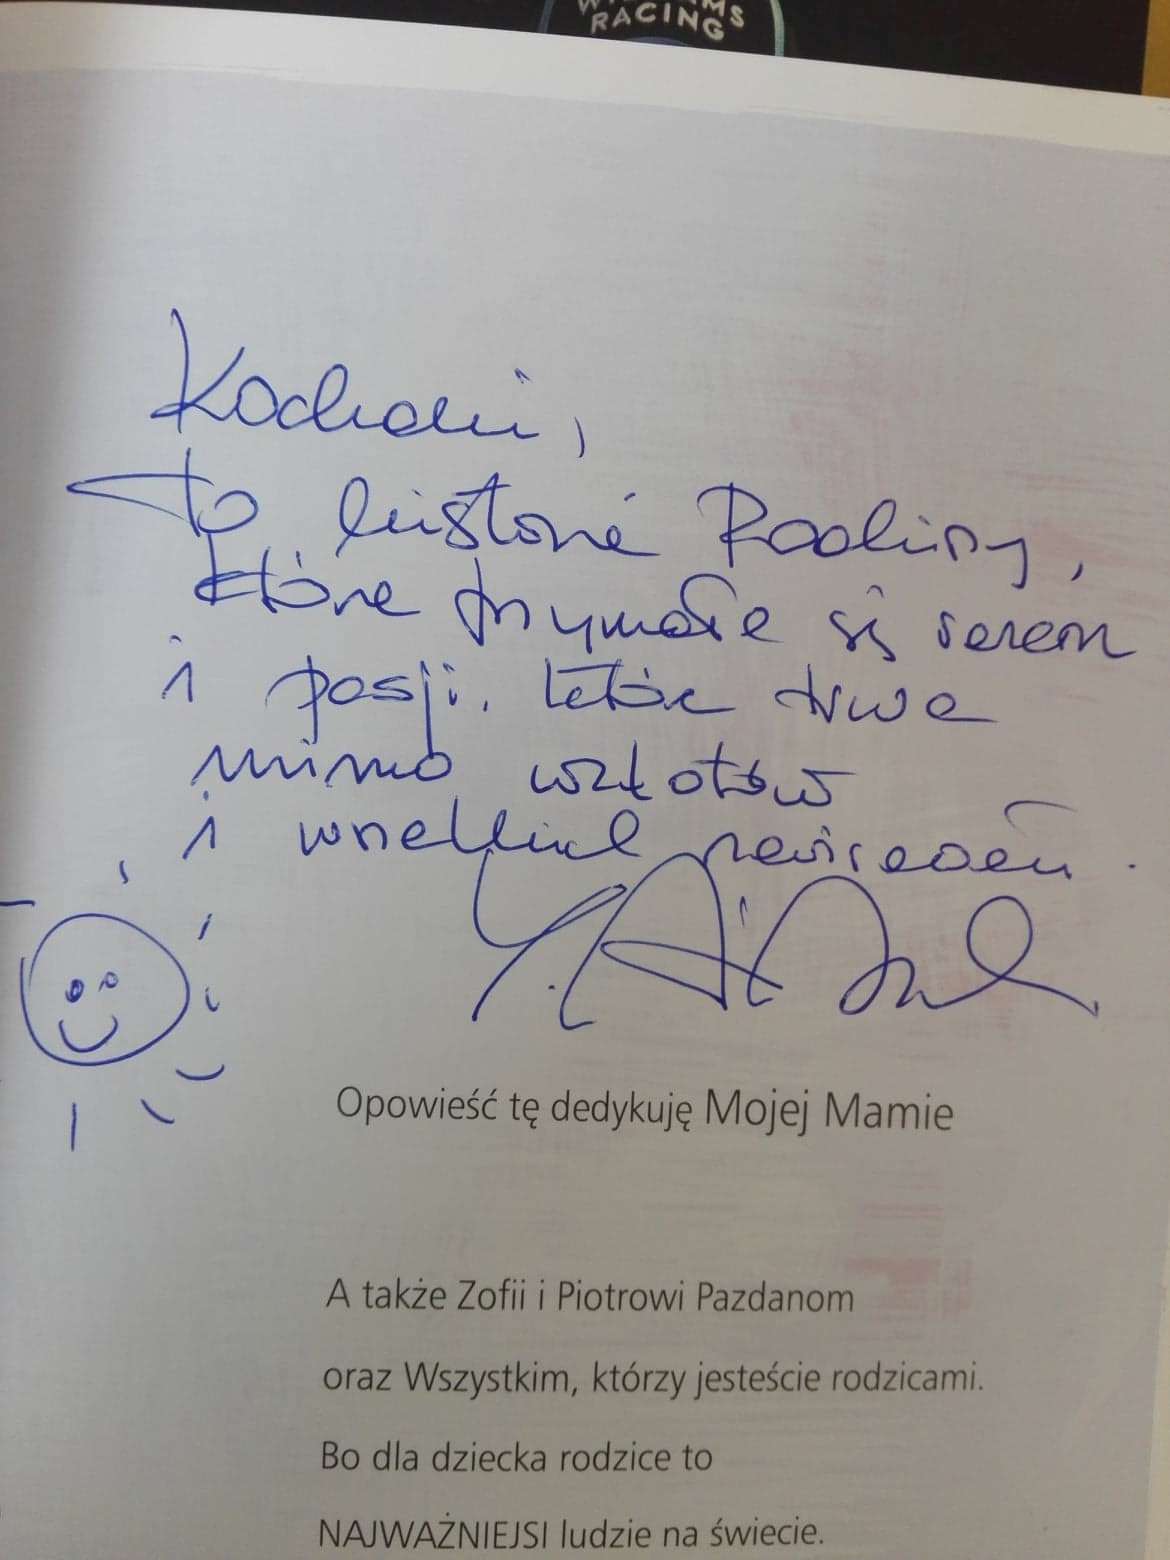 RACING
Kochani,
to historia Rodziny,
która trzymała się razem
i pasji, która trwa
mimo wzlotów
i wszelkich
Opowieść tę dedykuję Mojej Mamie
A także Zofii i Piotrowi Pazdanom
oraz Wszystkim, którzy jesteście rodzicami.
Bo dla dziecka rodzice to
NAJWAŻNIEJSI ludzie na świecie.